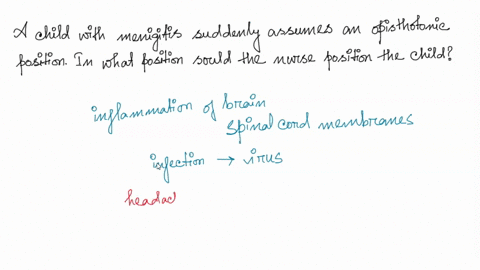 A child with menigitis suddenly assumes an opisthotonic
position. In what position sould the nurse position the child?
inflammation of brain
spinal cord membranes
infection → virus
headac